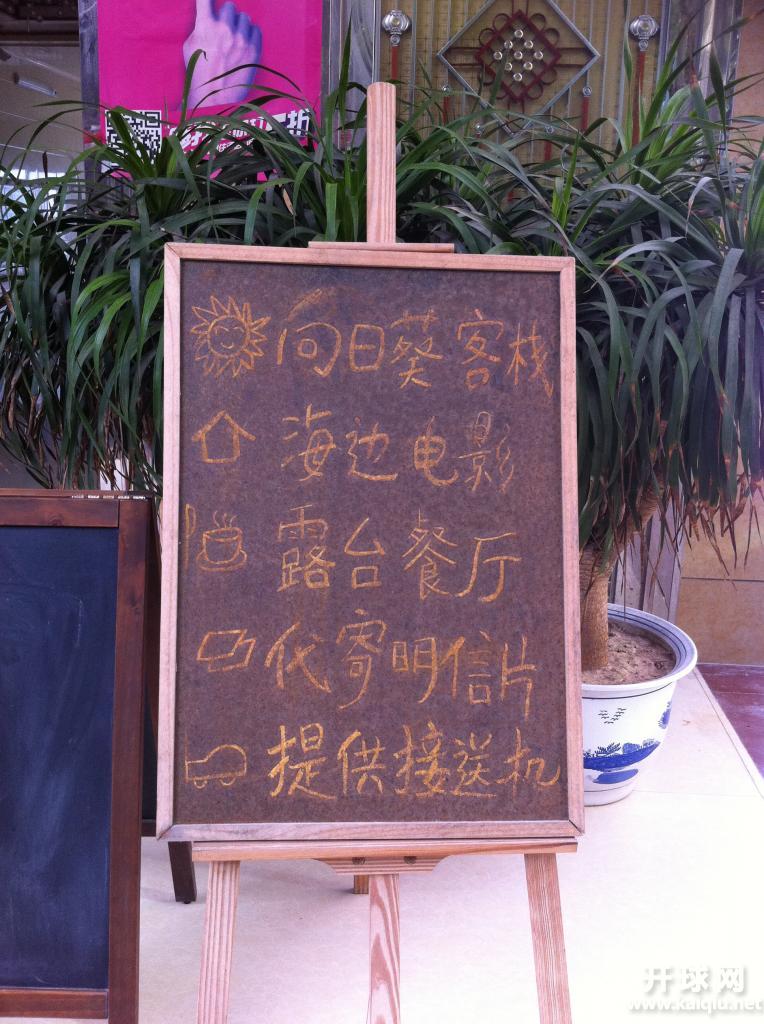 向日葵客栈
海边电影
露台餐厅
代寄明信片
提供接送机
开球网
www.kaiqiu.net